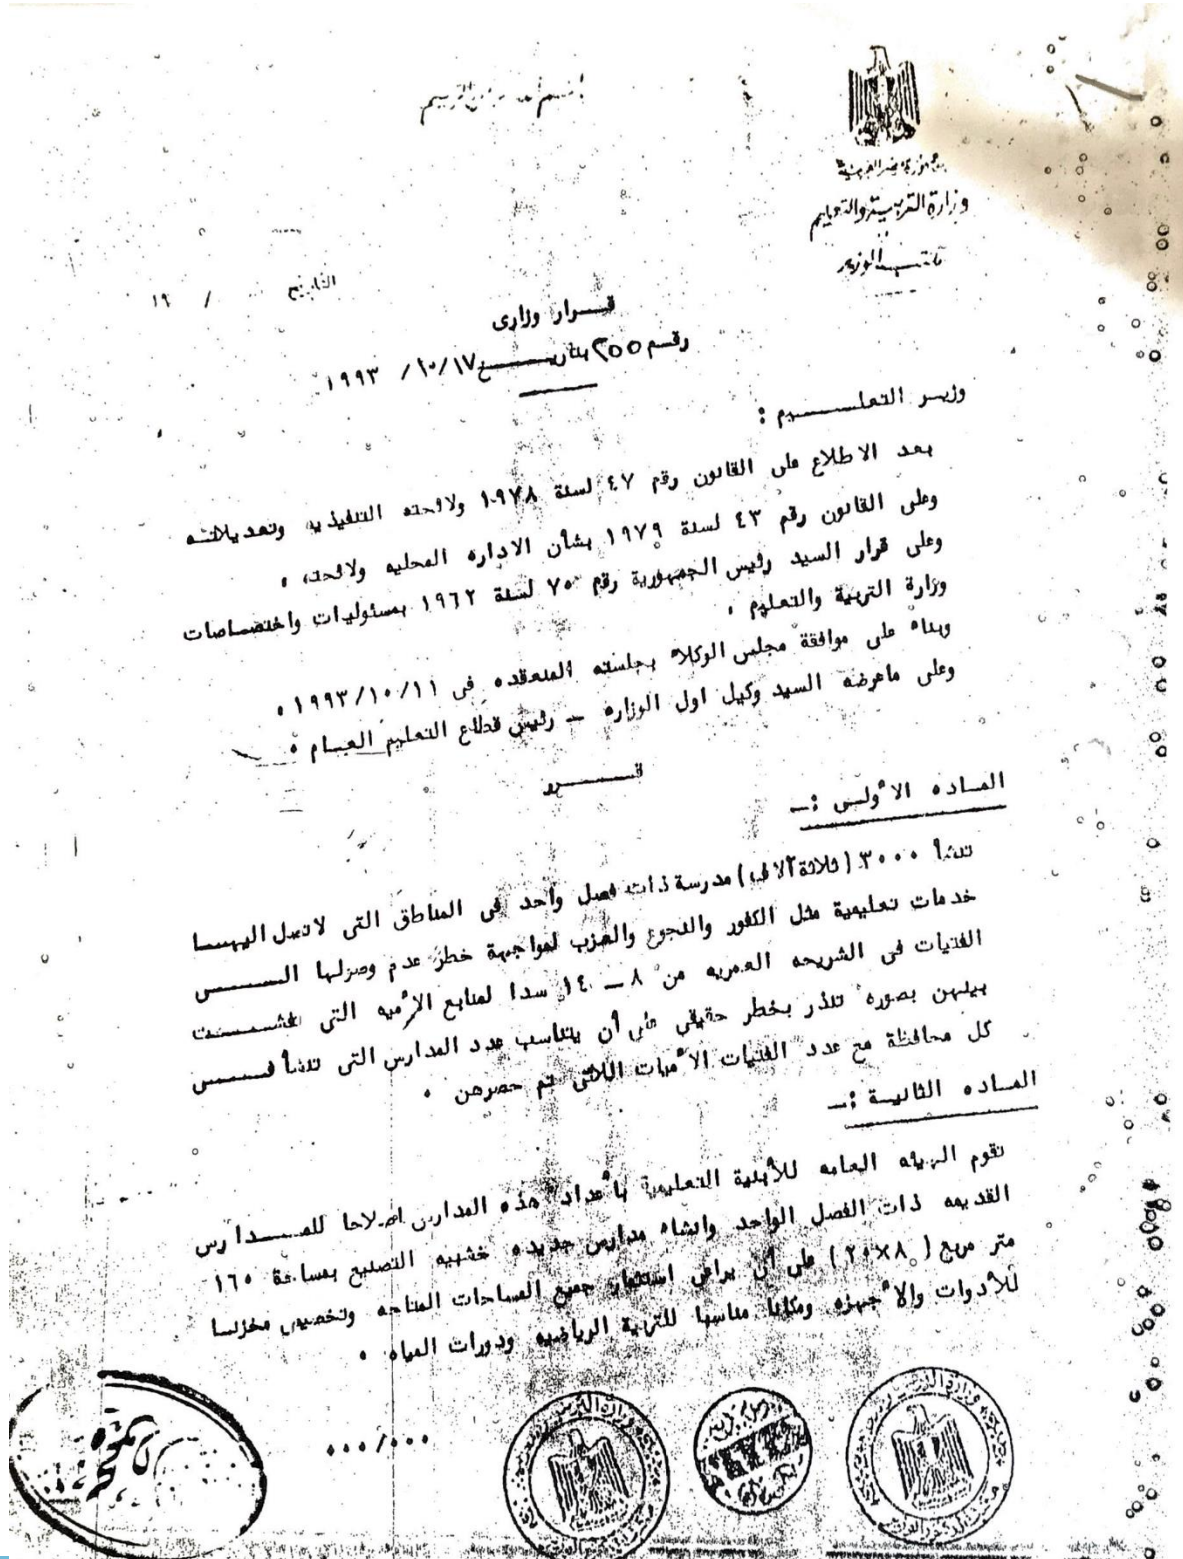 بسم الله الرحمن الرحيم
جمهورية مصر العربية
وزارة التربية والتعليم
مكتب الوزير
التاريخ / ١٩
قـــرار وزارى
رقـم ٢٥٥ بتاريـــــخ ١٠/١٧/ ١٩٩٣
وزيـر التعلـــــيم :
بعد الاطلاع على القانون رقم ٤٧ لسنة ١٩٧٨ ولائحته التنفيذيه وتعديلاتـه
وعلى القانون رقم ٤٣ لسنة ١٩٧٩ بشأن الاداره المحليه ولائحته .
وعلى قرار السيد رئيس الجمهورية رقم ٧٥ لسنة ١٩٦٢ بمسئوليات واختصاصات
وزارة التربية والتعليم .
وبناء على موافقة مجلس الوكلاء بجلسته المنعقده فى ١٩٩٣/١٠/١١ .
وعلى ماعرضه السيد وكيل اول الوزاره – رئيس قطاع التعليم العـام .
قــــرر
المـاده الأولـى :–
تنشأ ٣٠٠٠ (ثلاثة آلاف) مدرسة ذات فصل واحد فى المناطق التى لاتصل اليهــا
خدمات تعليمية مثل الكفور والنجوع والعزب لمواجهة خطر عدم وصولها الـــى
الفتيات فى الشريحه العمريه من ٨ – ١٤ سدا لمنابع الأميه التى تفشـــت
بينهن بصوره تنذر بخطر حقيقى على أن يتناسب عدد المدارس التى تنشأ فــى
كل محافظة مع عدد الفتيات الأميات اللاتى تم حصرهن .
المـاده الثانيـة :–
تقوم الهيئه العامه للأبنية التعليمية بأعداد هذه المدارس اصلاحا للمــدارس
القديمه ذات الفصل الواحد وانشاء مدارس جديده خشبيه التصنيع بمساحة ١٦٠
متر مربع ( ٢٠×٨ ) على أن يراعى استثمار جميع المساحات المتاحه وتخصيص مخزنـا
للأدوات والأجهزه ومكانا مناسبا للتربية الرياضيه ودورات المياه .
٠٠٠/٠٠٠